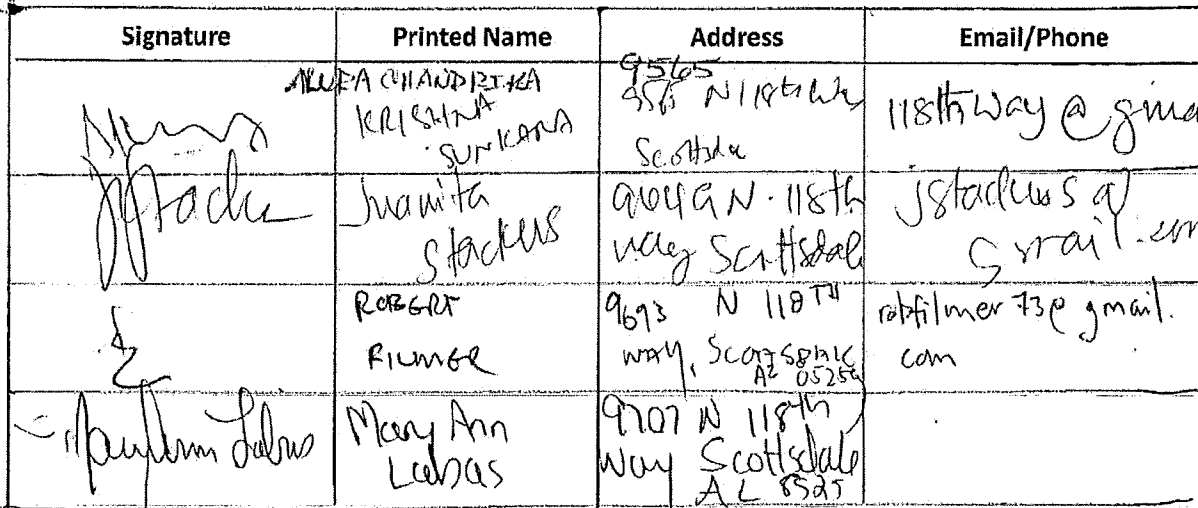 Signature Printed Name Address Email/Phone
CHANDRIKA
KRISHNA
SUNKARA
9565
N 118th Way
Scottsdale
118thway@gma
Juanita
Stackus
9649 N. 118th
way Scottsdale
jstackus@
gmail.com
ROBERT
FILMER
9693 N 118TH
WAY, SCOTTSDALE
AZ
robfilmer73@gmail.
com
Mary Ann
Labas
9707 N 118th
Way Scottsdale